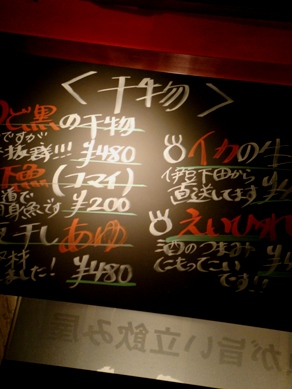 <干物>
ど黒の干物
ですが
抜群!!! ¥480
下魚(コマイ)
道で
身魚です ¥200
干し あゆ
ました! ¥480
イカの生
伊豆下田から
直送してます ¥4
えいひれ
酒のつまみ
にもってこい
です!! ¥4
が旨い立飲み屋